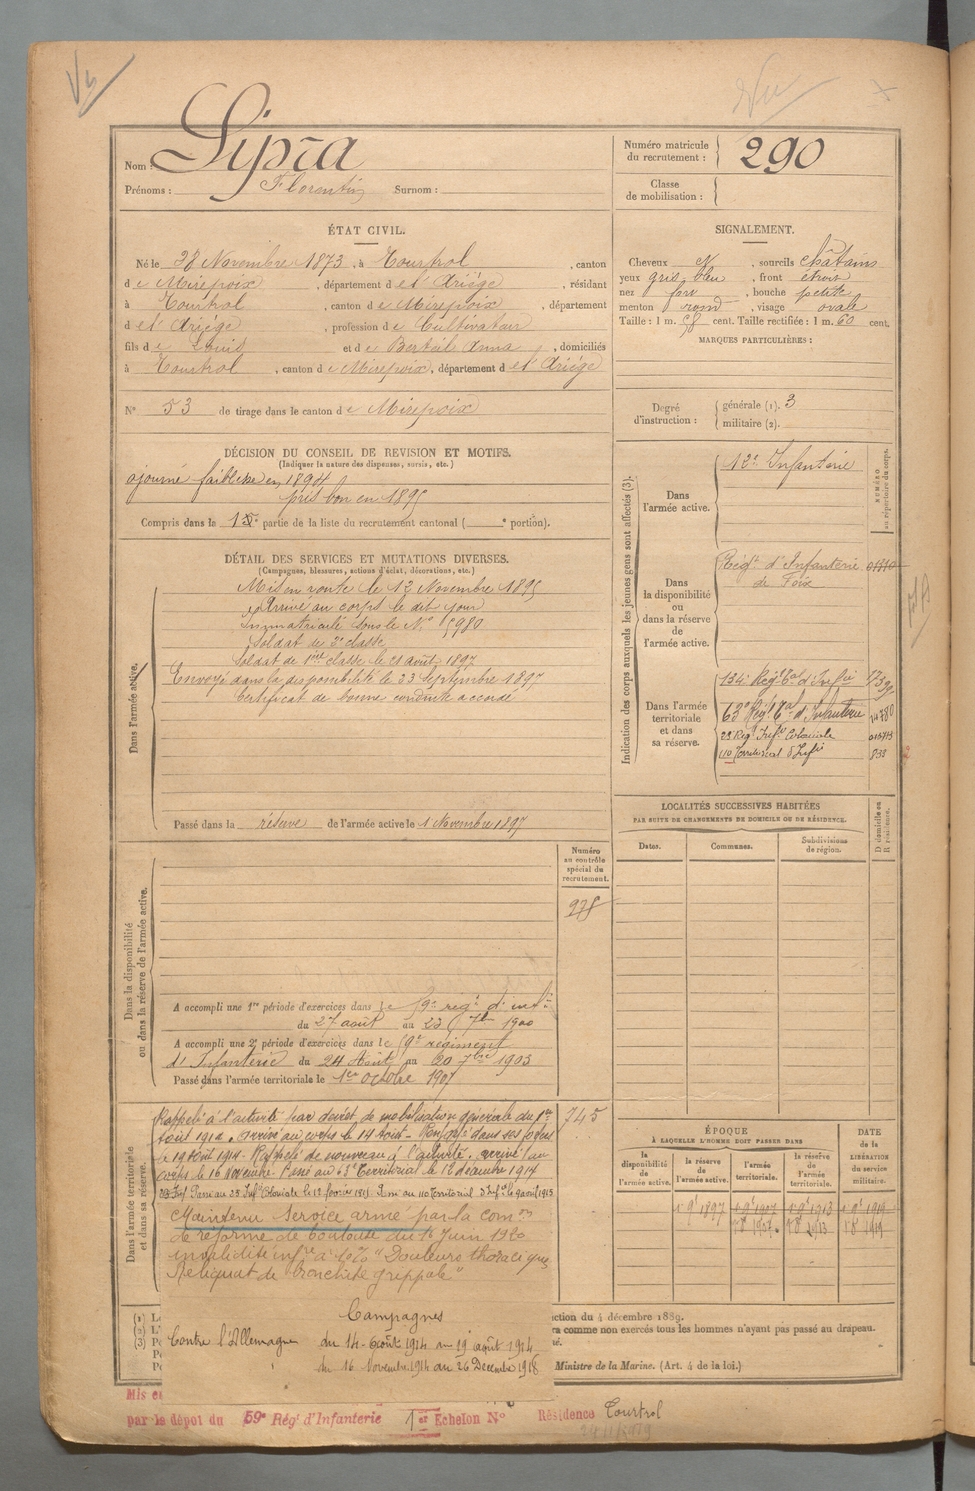 Nom : Sipra
Prénoms : Florentin Surnom :
Numéro matricule du recrutement : 290
Classe de mobilisation :
ÉTAT CIVIL.
Né le 28 Novembre 1873, à Tourtrol, canton
de Mirepoix, département de l'Ariège, résidant
à Tourtrol, canton de Mirepoix, département
de l'Ariège, profession de Cultivateur
fils de Louis et de Berteil Anna, domiciliés
à Tourtrol, canton de Mirepoix, département de l'Ariège
N° 53 de tirage dans le canton de Mirepoix
SIGNALEMENT.
Cheveux N, sourcils châtains
yeux gris bleu, front étroit
nez fort, bouche petite
menton rond, visage ovale
Taille : 1 m. 58 cent. Taille rectifiée : 1 m. 60 cent.
MARQUES PARTICULIÈRES :
Degré d'instruction : générale (1). 3
militaire (2).
DÉCISION DU CONSEIL DE REVISION ET MOTIFS.
(Indiquer la nature des dispenses, sursis, etc.)
ajourné faiblesse en 1894
pris bon en 1895
Compris dans la 1e partie de la liste du recrutement cantonal ( e portion).
DÉTAIL DES SERVICES ET MUTATIONS DIVERSES.
(Campagnes, blessures, actions d'éclat, décorations, etc.)
Dans l'armée active.
Mis en route le 12 Novembre 1895
Arrivé au corps le dit jour
Immatriculé sous le N° 5980
Soldat de 2e classe
Soldat de 1re classe le 21 août 1897
Envoyé dans la disponibilité le 23 Septembre 1897
Certificat de bonne conduite accordé
Passé dans la réserve de l'armée active le 1 Novembre 1897
Indication des corps auxquels les jeunes gens sont affectés (3).
NUMÉRO au répertoire du corps.
Dans l'armée active.
12e Infanterie
Dans la disponibilité ou dans la réserve de l'armée active.
Régt d'Infanterie
de Foix
Dans l'armée territoriale et dans sa réserve.
134e Régt Tal d'Infie
63e Régt Tal d'Infanterie
23 Régt Infie Coloniale
110 Territorial d'Infie 833
LOCALITÉS SUCCESSIVES HABITÉES
PAR SUITE DE CHANGEMENTS DE DOMICILE OU DE RÉSIDENCE.
Dates. Communes. Subdivisions de région. D domicile ou R résidence.
Dans la disponibilité ou dans la réserve de l'armée active.
Numéro au contrôle spécial du recrutement.
A accompli une 1re période d'exercices dans le 59e régt d'infie
du 27 août au 23 7bre 1900
A accompli une 2e période d'exercices dans le 59e régiment
d'Infanterie du 24 Août au 20 7bre 1903
Passé dans l'armée territoriale le 1er octobre 1907
Dans l'armée territoriale et dans sa réserve.
Rappelé à l'activité par décret de mobilisation générale du 1er
Août 1914. Arrivé au corps le 14 Août. Renvoyé dans ses foyers
le 19 Août 1914. Rappelé de nouveau à l'activité. Arrivé au
corps le 16 Novembre. Passé au 63e Territorial le 12 décembre 1914
Passé au 23 Infie Coloniale le 12 février 1915. Passé au 110 Territorial d'Infie le 9 avril 1915
745
Maintenu service armé par la Comon
de réforme de Toulouse du 16 Juin 1920
invalidité infre à 10% "Douleurs thoraciques
Reliquat de bronchite grippale"
Campagnes
Contre l'Allemagne du 14 août 1914 au 19 août 1914
du 16 Novembre 1914 au 26 Décembre 1918
ÉPOQUE
À LAQUELLE L'HOMME DOIT PASSER DANS
la disponibilité de l'armée active. la réserve de l'armée active. l'armée territoriale. la réserve de l'armée territoriale.
DATE de la LIBÉRATION du service militaire.
1 9 1897 1 9 1907 1 9 1913 1 9 1919
ction du 4 décembre 1889.
ra comme non exercés tous les hommes n'ayant pas passé au drapeau.
Ministre de la Marine. (Art. 4 de la loi.)
Mis e
par le dépôt du 59e Rég' d'Infanterie 1er Echelon N° Résidence Tourtrol